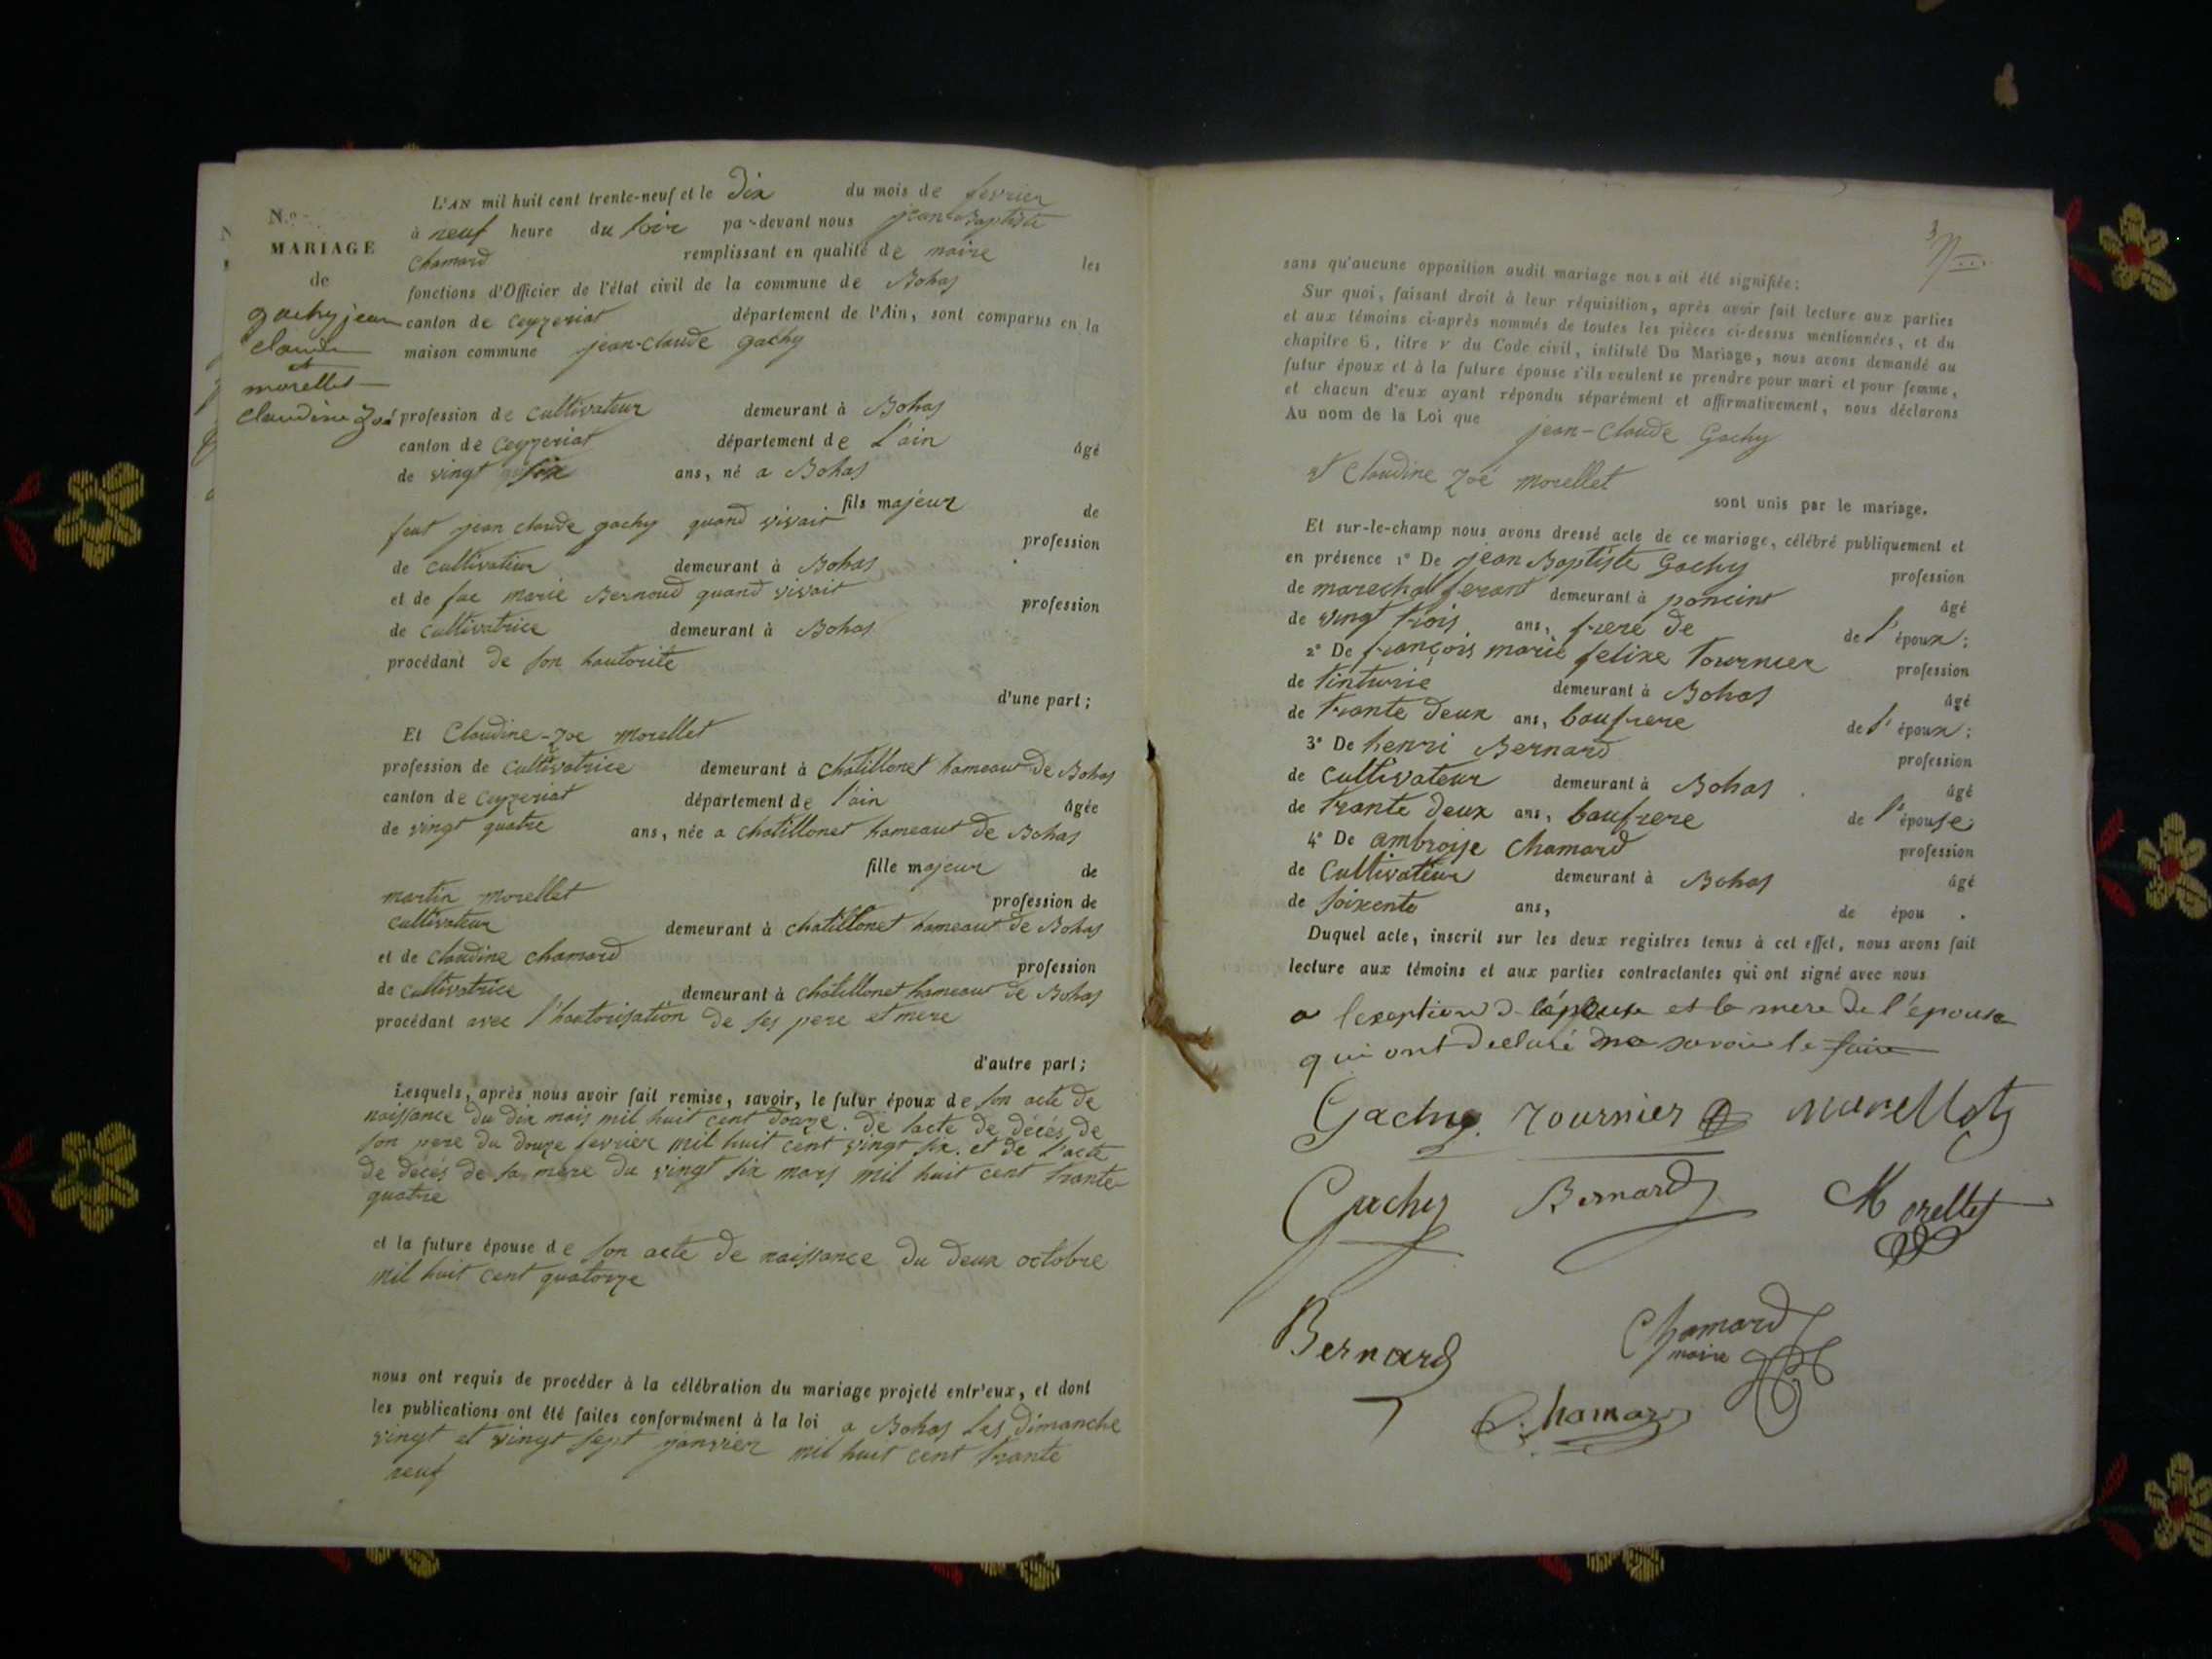 N.o
MARIAGE
de
gachy jean
claude
et
morellet
claudine Zoé
L'AN mil huit cent trente-neuf et le dix du mois de fevrier
à neuf heure du soir par-devant nous jean Baptiste
chamard remplissant en qualité de maire les
fonctions d'Officier de l'état civil de la commune de Bohas
canton de ceyzeriat département de l'Ain, sont comparus en la
maison commune jean-claude gachy
profession de cultivateur demeurant à Bohas
canton de ceyzeriat département de l'ain âgé
de vingt six ans, né a Bohas
fils majeur de
feut jean claude gachy quand vivait profession
de cultivateur demeurant à Bohas
et de fue marie Bernoud quand vivait profession
de cultivatrice demeurant à Bohas
procédant de son hautorité
d'une part;
Et Claudine-Zoe morellet
profession de cultivatrice demeurant à chatillonet hameau de Bohas
canton de ceyzeriat département de l'ain âgée
de vingt quatre ans, née a chatillonet hameaut de Bohas
fille majeur de
martin morellet profession de
cultivateur demeurant à chatillonet hameaut de Bohas
et de claudine chamard profession
de cultivatrice demeurant à chatillonet hameau de Bohas
procédant avec l'hautorisation de ses pere et mere
d'autre part;
Lesquels, après nous avoir fait remise, savoir, le futur époux de son acte de
naissance du dix mais mil huit cent douze. de lacte de décés de
son pere du douze fevrier mil huit cent vingt six. et de l'acte
de décés de sa mere du vingt six mars mil huit cent trante
quatre
et la future épouse de son acte de naissance du deux octobre
mil huit cent quatorze
nous ont requis de procéder à la célébration du mariage projeté entr'eux, et dont
les publications ont été faites conformément à la loi a Bohas les dimanche
vingt et vingt sept janvier mil huit cent trante
neuf
3
sans qu'aucune opposition audit mariage nous ait été signifiée;
Sur quoi, faisant droit à leur réquisition, après avoir fait lecture aux parties
et aux témoins ci-après nommés de toutes les pièces ci-dessus mentionnées, et du
chapitre 6, titre v du Code civil, intitulé Du Mariage, nous avons demandé au
futur époux et à la future épouse s'ils veulent se prendre pour mari et pour femme,
et chacun d'eux ayant répondu séparément et affirmativement, nous déclarons
Au nom de la Loi que jean-claude Gachy
et Claudine Zoé morellet
sont unis par le mariage.
Et sur-le-champ nous avons dressé acte de ce mariage, célébré publiquement et
en présence 1° De jean Baptiste Gachy profession
de marechal ferant demeurant à poncint âgé
de vingt trois ans, frere de de l'époux;
2° De françois marie felixe tournier profession
de tinturié demeurant à Bohas âgé
de trante deux ans, baufrere de l'époux;
3° De henri Bernard profession
de cultivateur demeurant à Bohas âgé
de trante deux ans, baufrere de l'épouse;
4° De ambroise chamard profession
de cultivateur demeurant à Bohas âgé
de soixente ans, de épou .
Duquel acte, inscrit sur les deux registres tenus à cet effet, nous avons fait
lecture aux témoins et aux parties contractantes qui ont signé avec nous
a lexeption d lépouse et la mere de l'épouse
qui ont declaré ne savoir le faire
Gachy. Tournier morellet
Gachy Bernard Morellet
Bernard Chamard
maire
Chamard